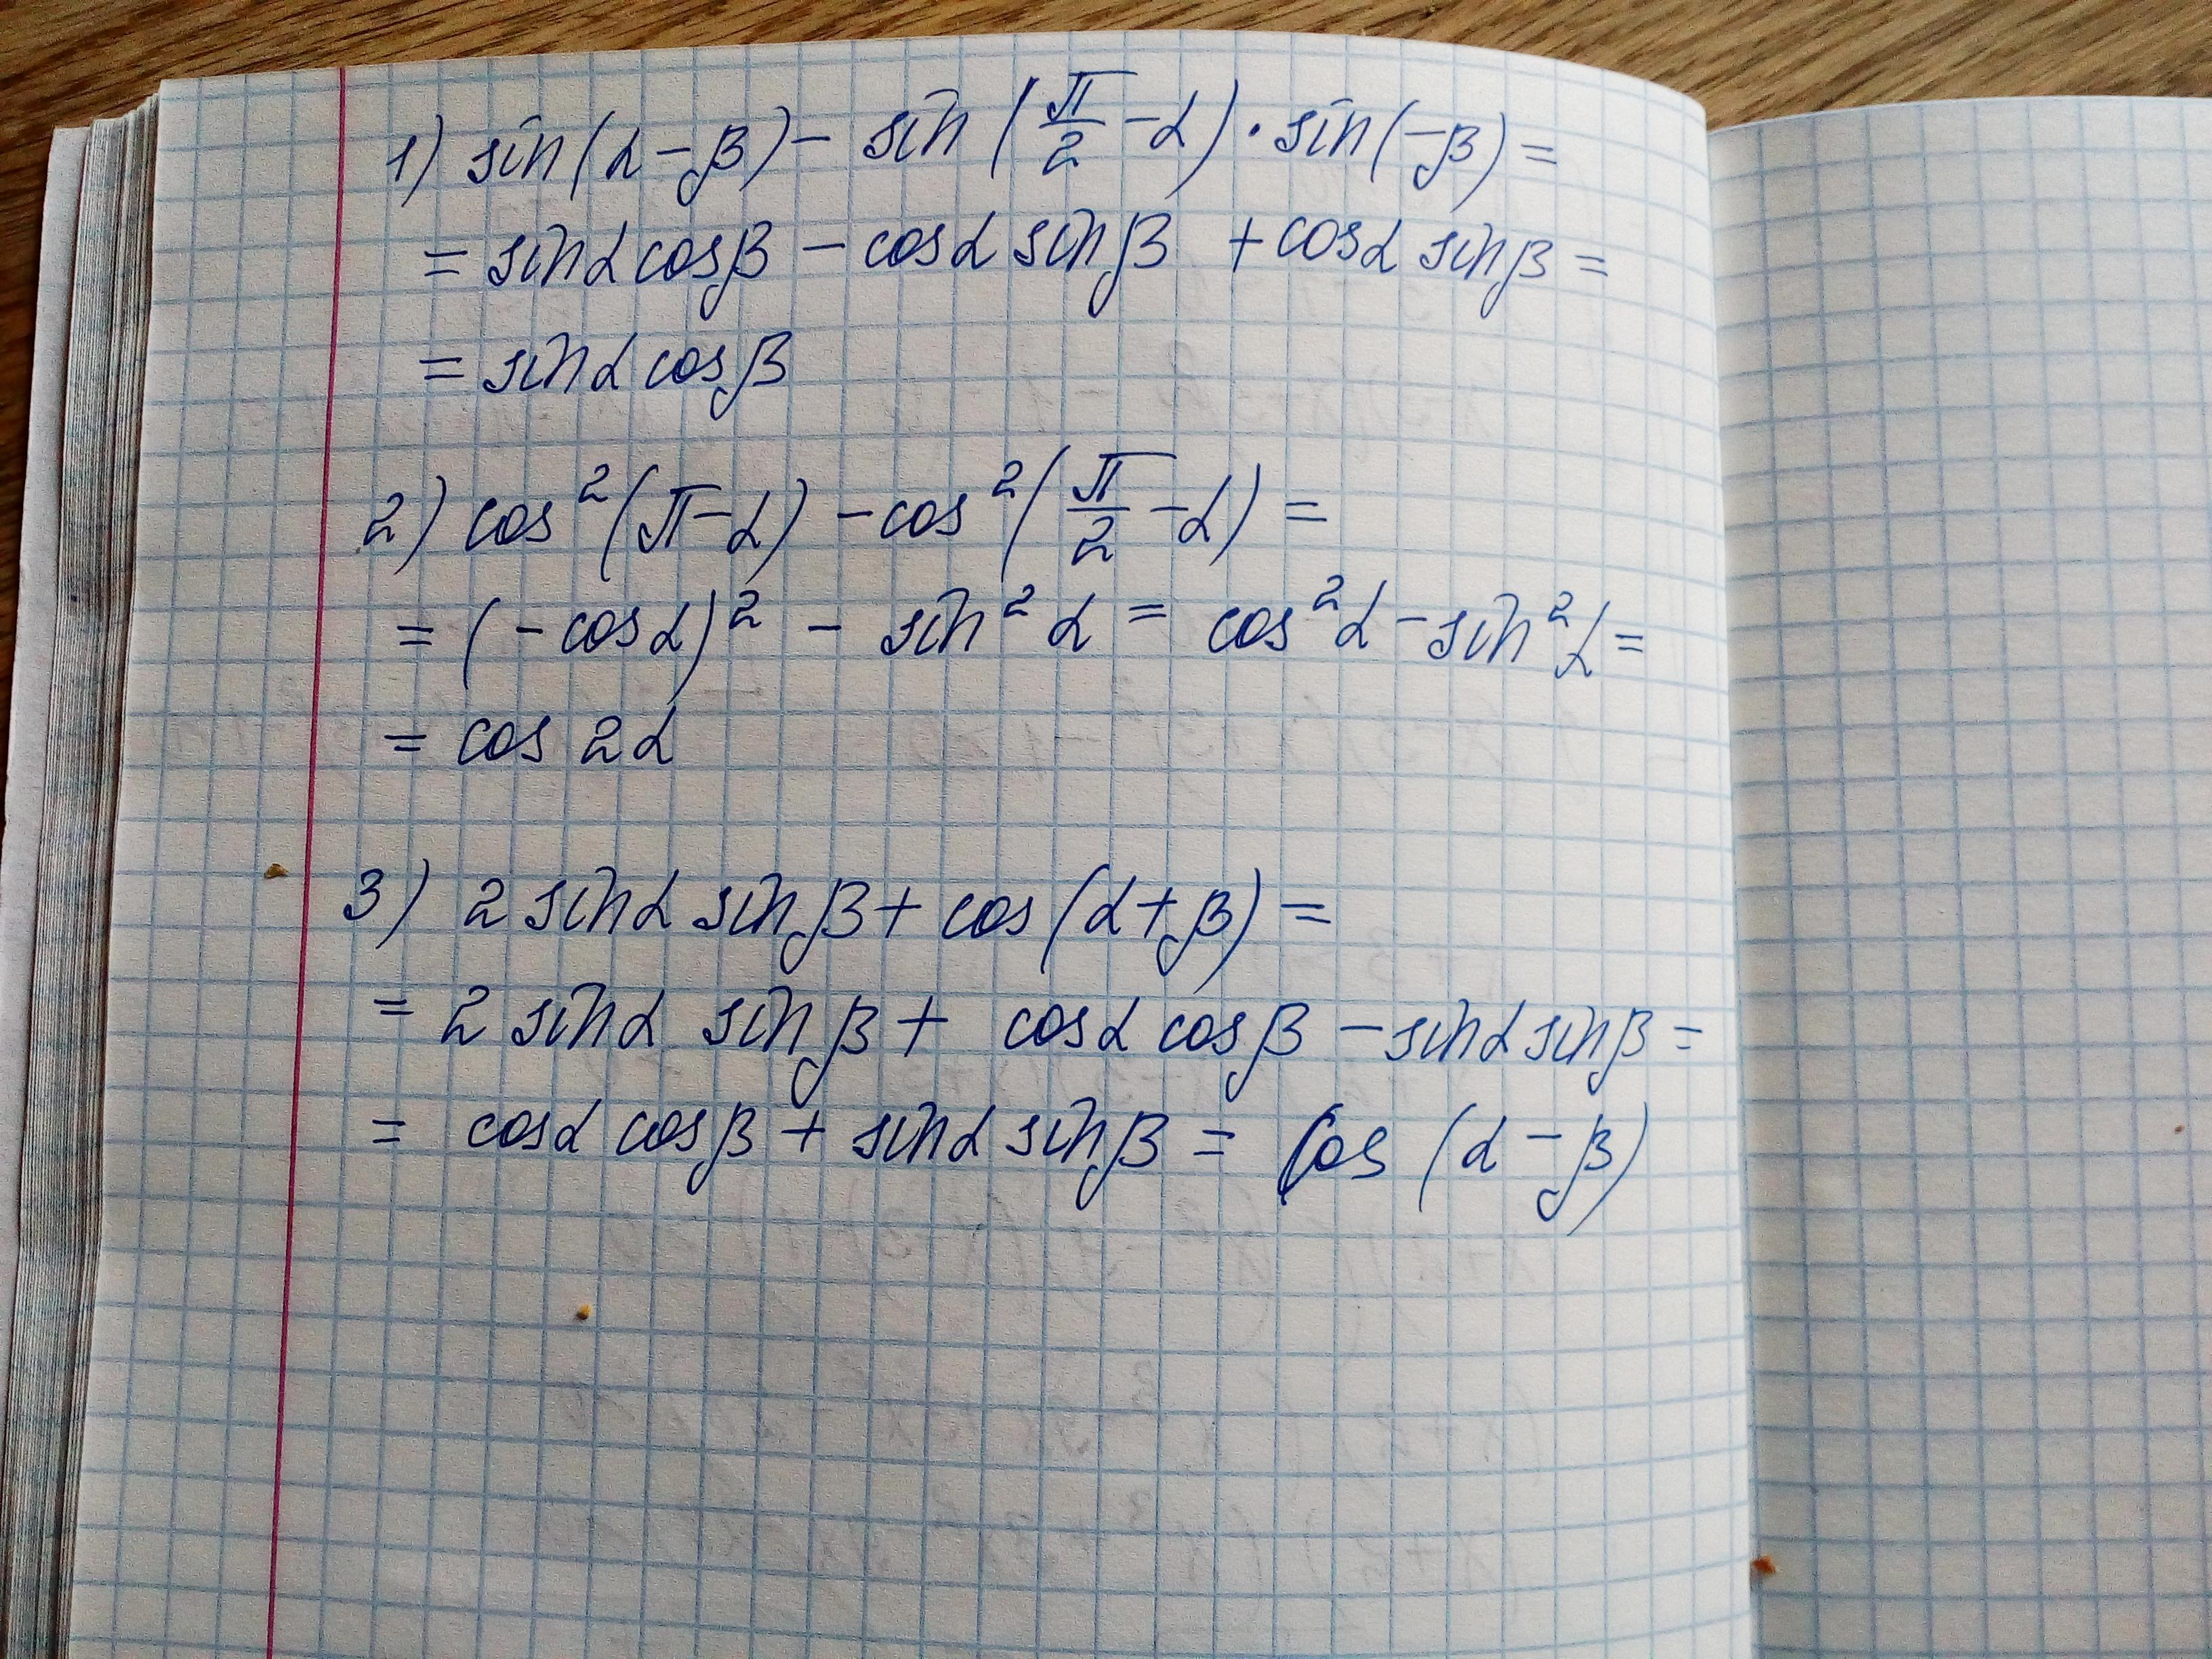 1) sin(α-β)- sin(π/2-α)·sin(-β)=
= sinα cosβ - cosα sinβ + cosα sinβ =
= sinα cosβ
2) cos²(π-α) -cos²(π/2-α) =
= (-cosα)² - sin²α = cos²α - sin²α =
= cos 2α
3) 2 sinα sinβ + cos(α+β) =
= 2 sinα sinβ + cosα cosβ - sinα sinβ =
= cosα cosβ + sinα sinβ = cos (α-β)